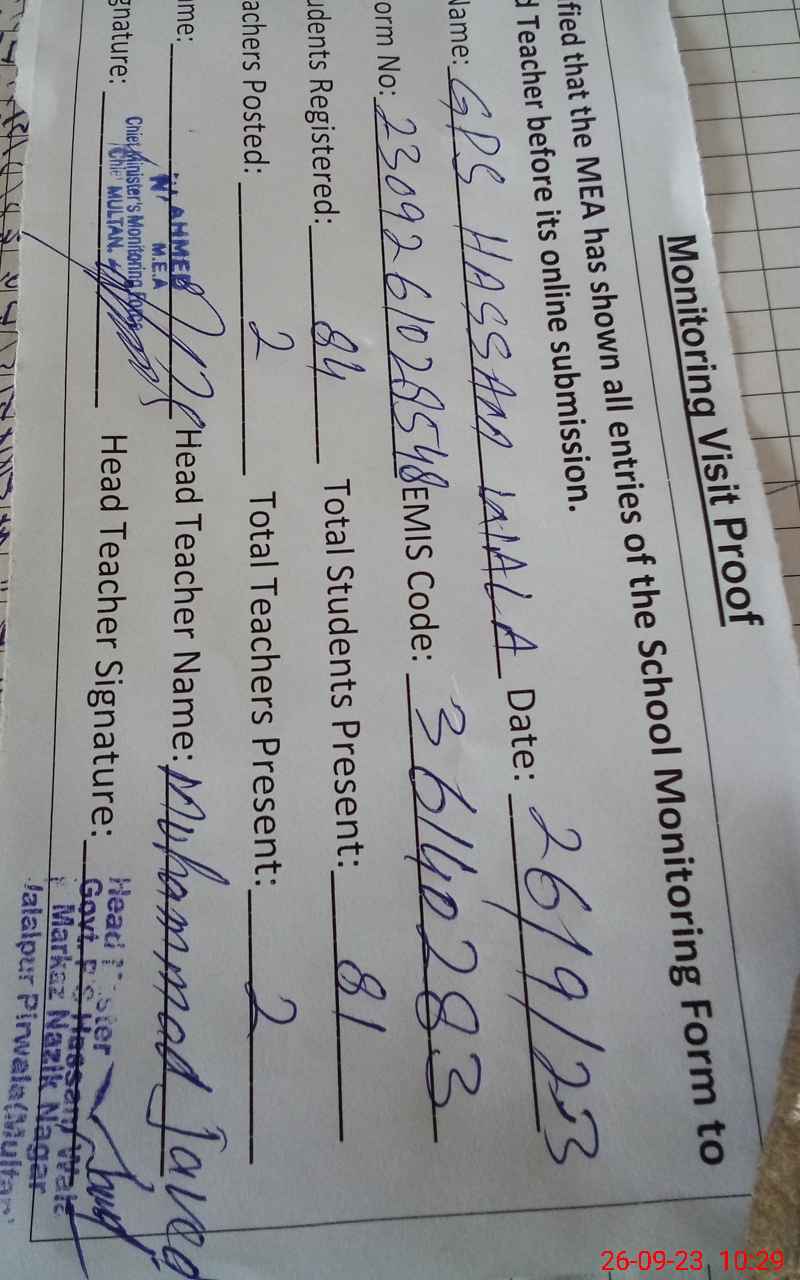 Monitoring Visit Proof
fied that the MEA has shown all entries of the School Monitoring Form to
d Teacher before its online submission.
Name: GPS HASSAN WALA Date: 26/9/23
orm No: 2309261028548 EMIS Code: 36140283
udents Registered: 84 Total Students Present: 81
achers Posted: 2 Total Teachers Present: 2
ame: AHMED Head Teacher Name: Muhammad Javed
M.E.A
Chief Minister's Monitoring Force
MULTAN.
gnature: Head Teacher Signature:
Head
Govt. P/S Hassan Wala
Markaz Nazik Nagar
Jalalpur Pirwala (Multan)
26-09-23 10:29